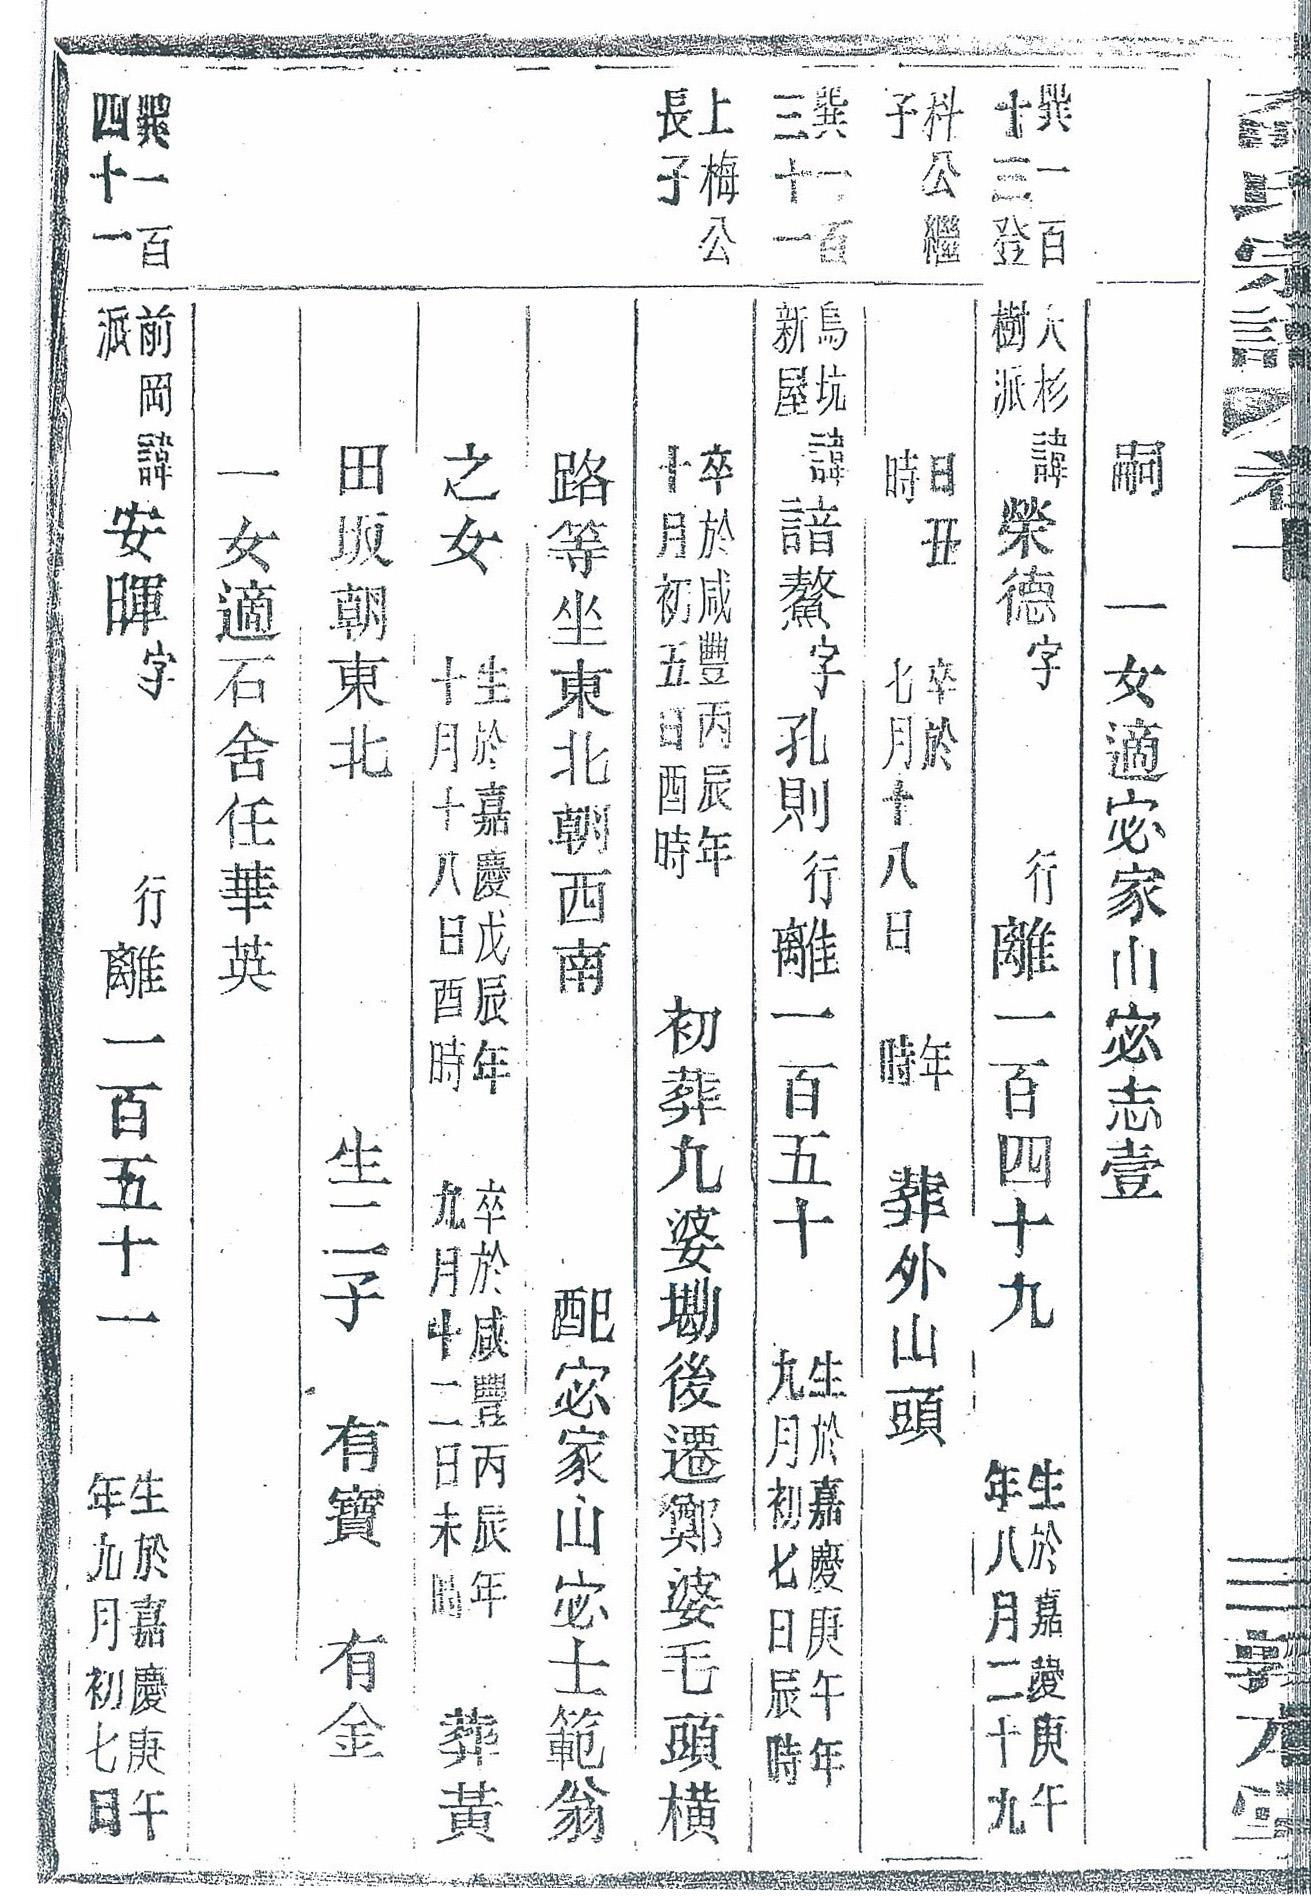 氏宗譜 卷一
嗣 一女適宓家山宓志壹
巽一百
十三登
大杉
樹派
諱榮德字 行離一百四十九
生於嘉慶庚午
年八月二十九
枓公繼
子
日丑
時
卒於 年
七月十八日 時
葬外山頭
巽一百
三十一
烏坑
新屋
諱諳鰲字孔則 行離一百五十
生於嘉慶庚午年
九月初七日辰時
上梅公
長子
卒於咸豐丙辰年
十月初五日酉時
初葬九婆墈後遷鄭婆毛頭橫
路等坐東北朝西南 配宓家山宓士範翁
之女
生於嘉慶戊辰年
十月十八日酉時
卒於咸豐丙辰年
九月十二日未時
葬黃
田坂朝東北 生二子 有寶 有金
一女適石舍任華英
巽一百
四十一
前岡
派
諱安暉字 行離一百五十一
生於嘉慶庚午
年九月初七日